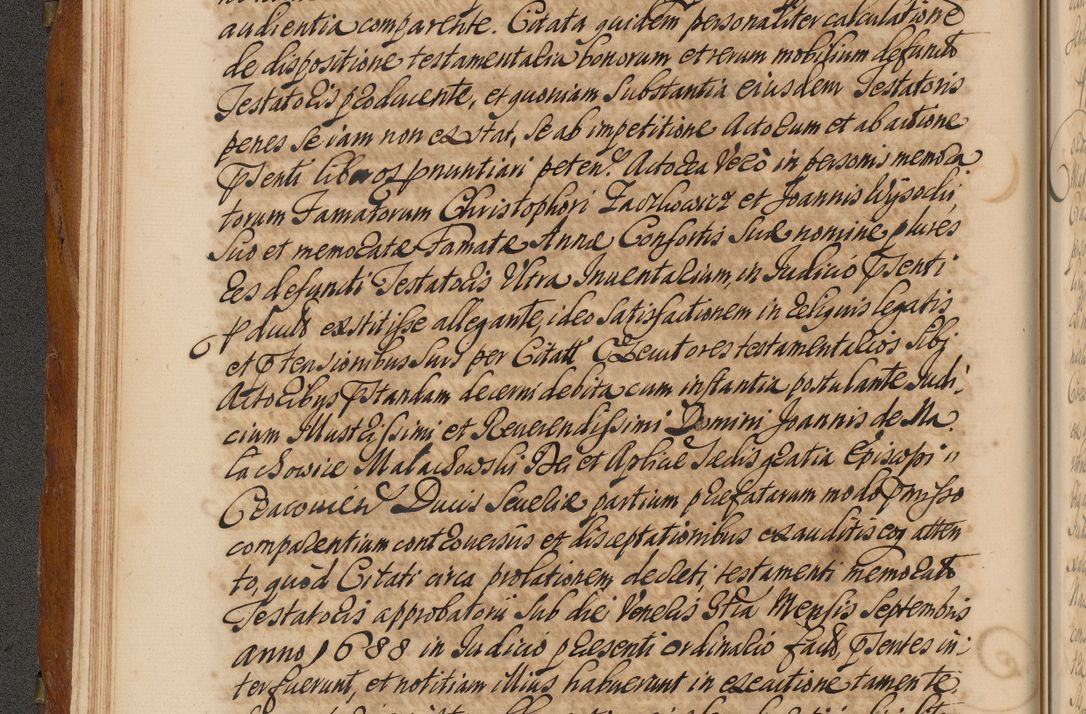 audientia comparente. Citata quidem personaliter calculatione
de dispositione testamentalia bonorum et rerum mobilium defuncti
Testatoris producente, et quoniam substantia eiusdem Testatoris
penes se iam non exstat, se ab impetitione Actorum et ab actione
pnti liberos pnuntiari peten. Actorea vero in personis memora
torum Famatorum Christophori Zaczkowicz et Joannis Wysocki,
suo et memoratæ Famatæ Annæ Consortis suæ nomine plures
res defuncti Testatoris ultra Inventarium, in Iudicio psenti
pduct exstitisse allegante, ideo satisfactionem in reliquis legatis
et ptensionibus suis per Citat Executores testamentarios sibi
Actoribus pstandam decerni debita cum instantia postulante Judi
cium Illustrissimi et Reverendissimi Domini Joannis de Ma
lachowice Malachowski Dei et Aplicæ Sedis gratia Episcopi
Cracovien Ducis Severiæ partium præfatarum modo pmisso
comparentium controversiis et disceptationibus exauditis eoq atten
to, quod Citati circa prolationem decreti, testamenti memorati
Testatoris approbatorii sub die Veneris 3tia Mensis Septembris
anno 1688 in Iudicio præsenti ordinario fact psentes in
terfuerunt, et notitiam illius habuerunt in executione tamen te